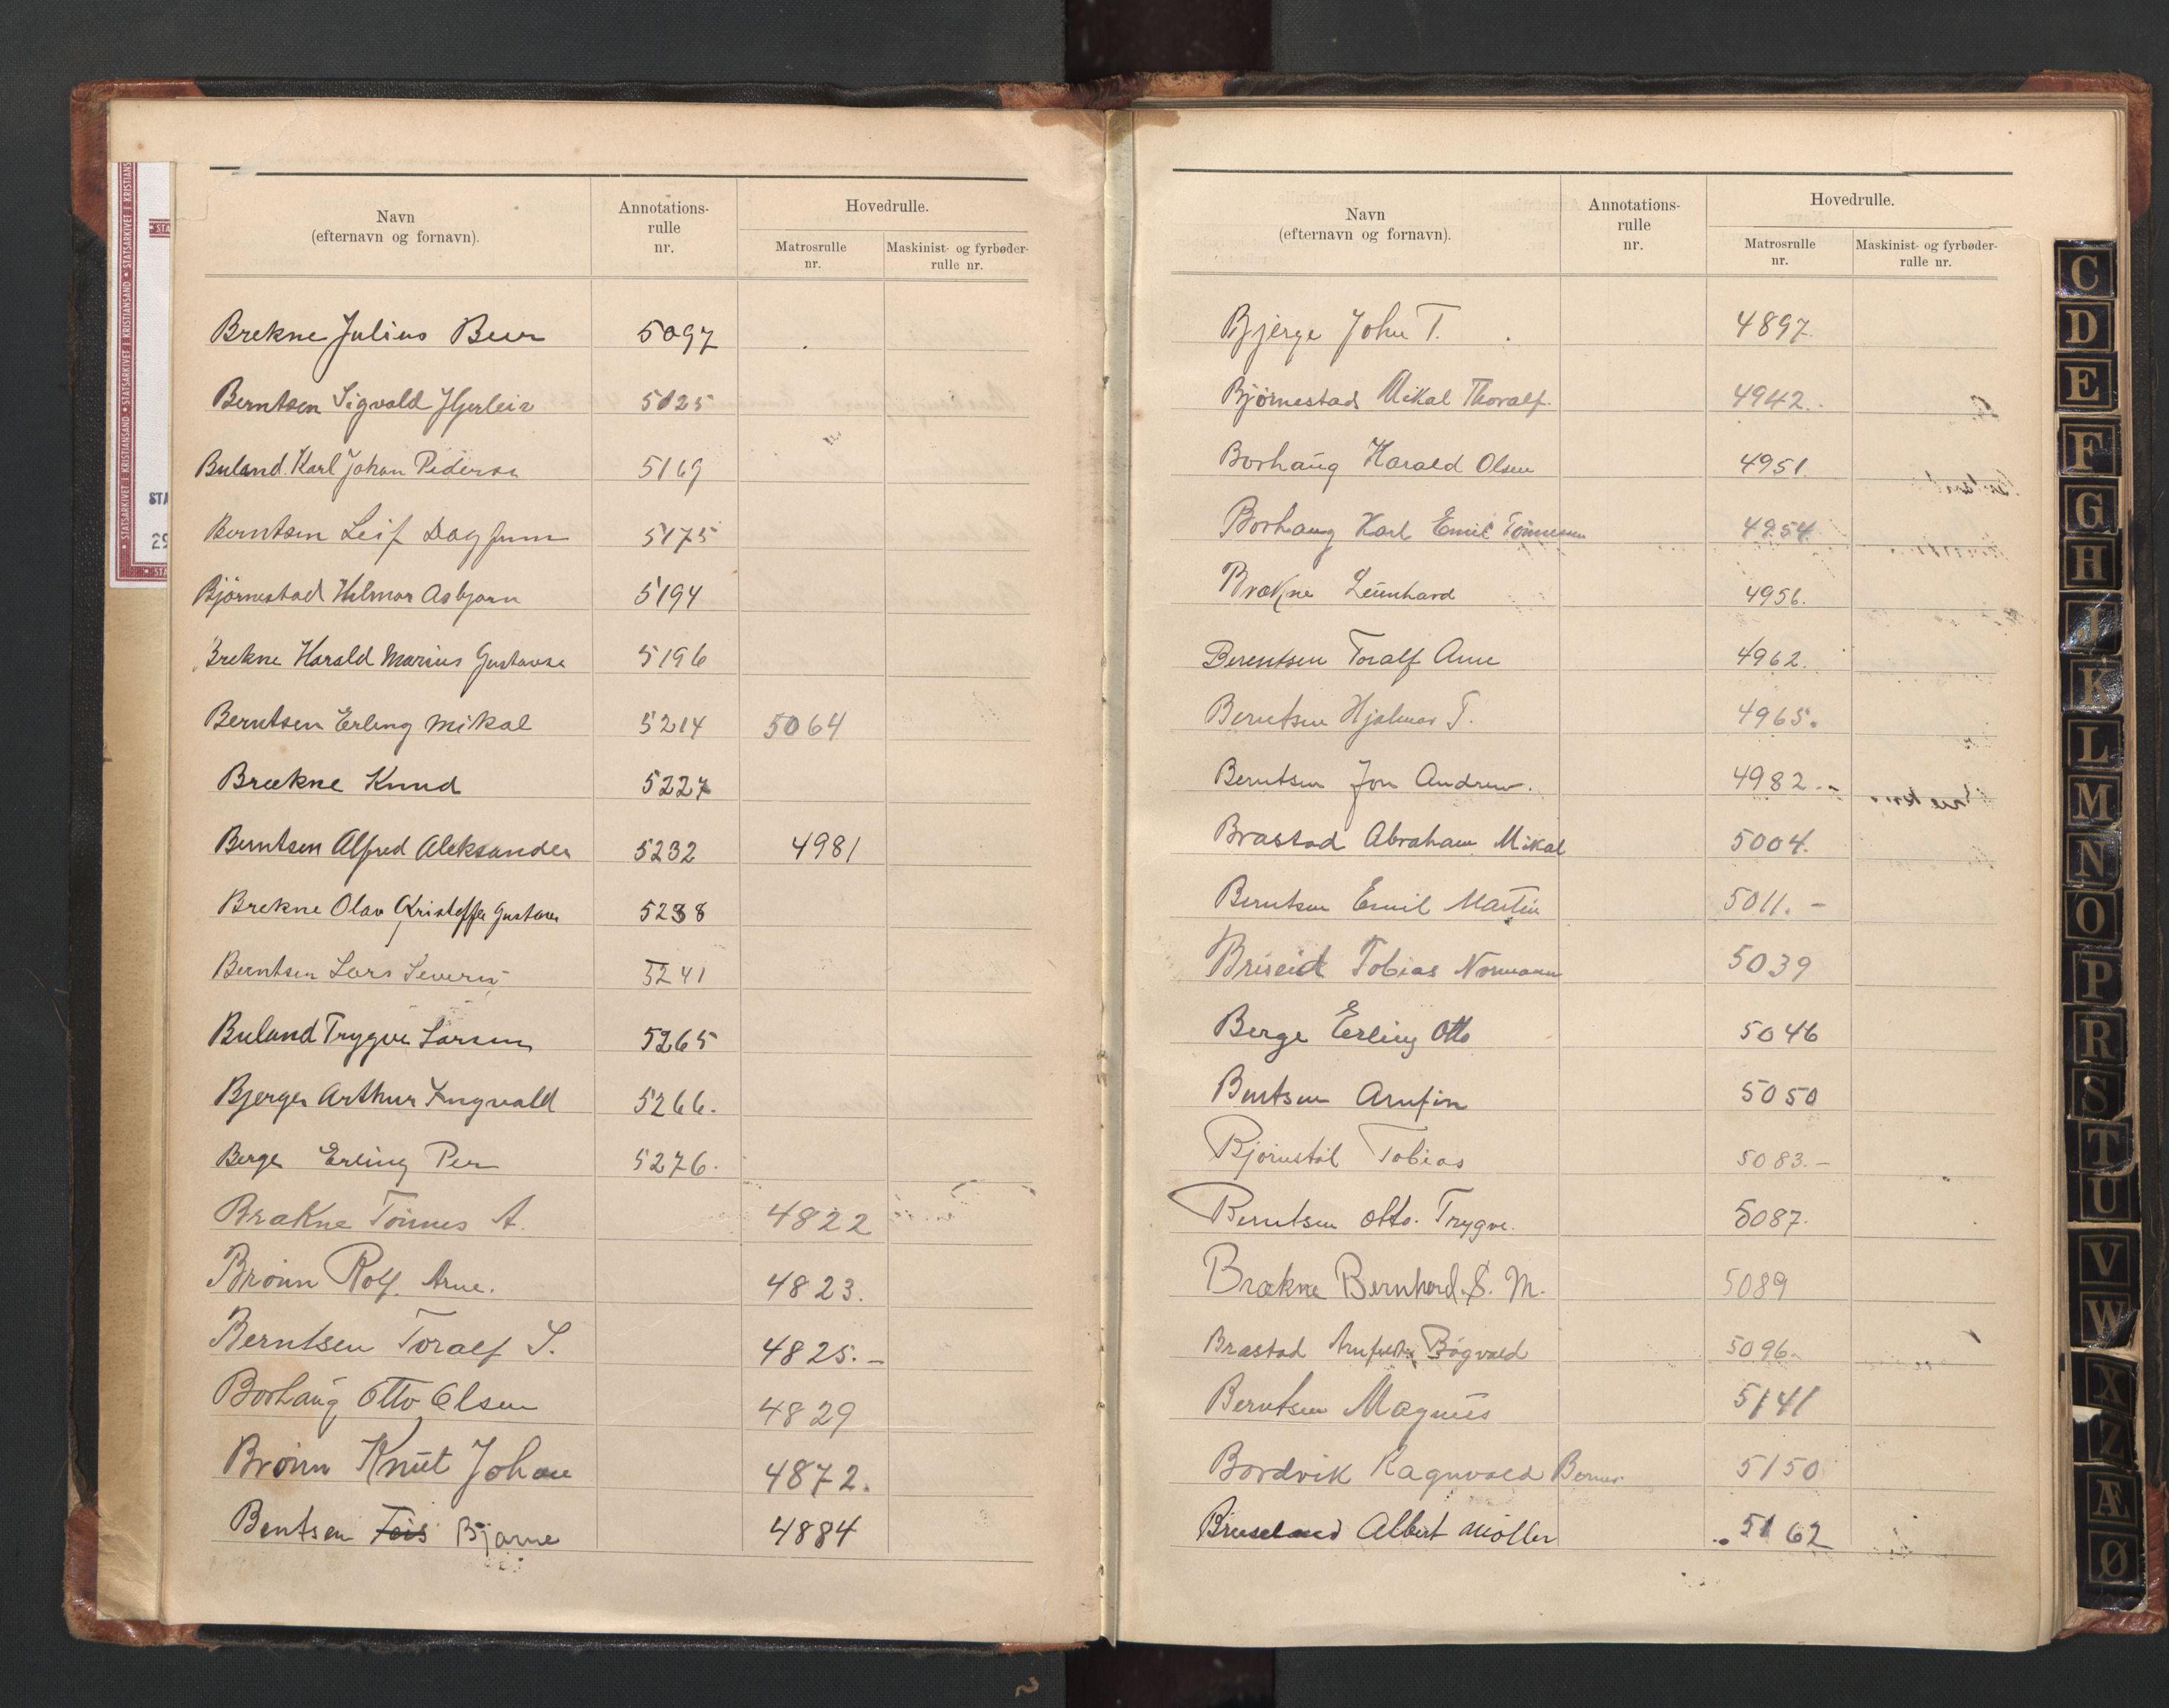 Navn
(efternavn og fornavn).
Annotations-
rulle
nr.
Hovedrulle.
Matrosrulle
nr.
Maskinist- og fyrbøder-
rulle nr.
Brekne Julius Beer 5097
Berntsen Sigvald Hjerleid 5125
Buland Karl Johan Pedersen 5169
Berntsen Leif Dagfinn 5175
Bjørnestad Hilmar Asbjørn 5194
Brekne Harald Marius Gustavsen 5196
Berntsen Erling Mikal 5214 5064
Brækne Knud 5227
Berntsen Alfred Aleksander 5232 4981
Brekne Olav Kristoffer Gustavsen 5238
Berntsen Lars Severin 5241
Buland Trygve Larsen 5265
Bjerge Arthur Yngvald 5266.
Berge Erling Per 5276.
Brækne Tønnes A. 4822
Brönn Rolf Arne. 4823.
Berntsen Toralf S. 4825.-
Borhaug Otto Olsen 4829
Brönn Knut Johan 4872.
Bentsen Bjarne 4884
Navn
(efternavn og fornavn).
Annotations-
rulle
nr.
Hovedrulle.
Matrosrulle
nr.
Maskinist- og fyrbøder-
rulle nr.
Bjerge John T. 4897.
Bjørnestad Mikal Thoralf. 4942.
Borhaug Harald Olsen 4951.
Borhaug Karl Emil Tønnesen 4954
Brækne Leonhard 4956.
Berentsen Toralf Arne 4962.
Berntsen Hjalmar T. 4965.
Berntsen Jon Andrew. 4982.-
Brastad Abraham Mikal 5004.
Berntsen Emil Martin 5011.-
Briseid Tobias Normann 5039
Berge Erling Otto 5046
Bentsen Arnfin 5050
Bjørnstøl Tobias 5083.-
Berntsen Otto Trygve. 5087.
Brækne Bernhard S. M. 5089
Brastad Bøgvald 5096.
Berntsen Magnus 5141
Bordvik Ragnvald Berner 5150
Bruseland Albert Møller 5162
C
D
E
F
G
H
J
K
L
M
N
O
P
R
S
T
U
V
W
X
Z
Æ
Ø